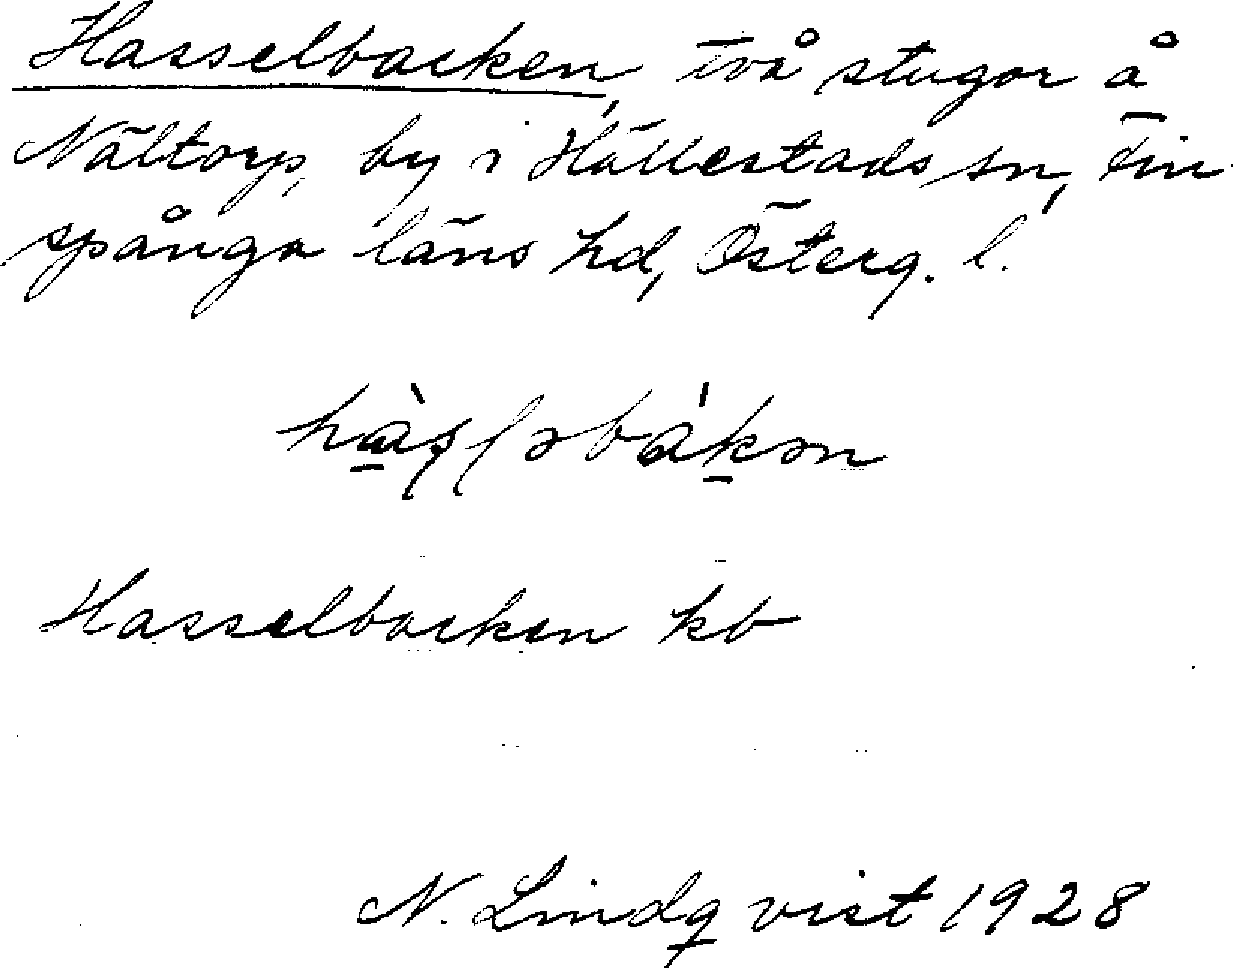 Hasselbacken, två stugor å
Nältorp, by i Hällestads sn, Fin
spånga läns hd, Österg. l.
Hasselbacken kb
N. Lindqvist 1928